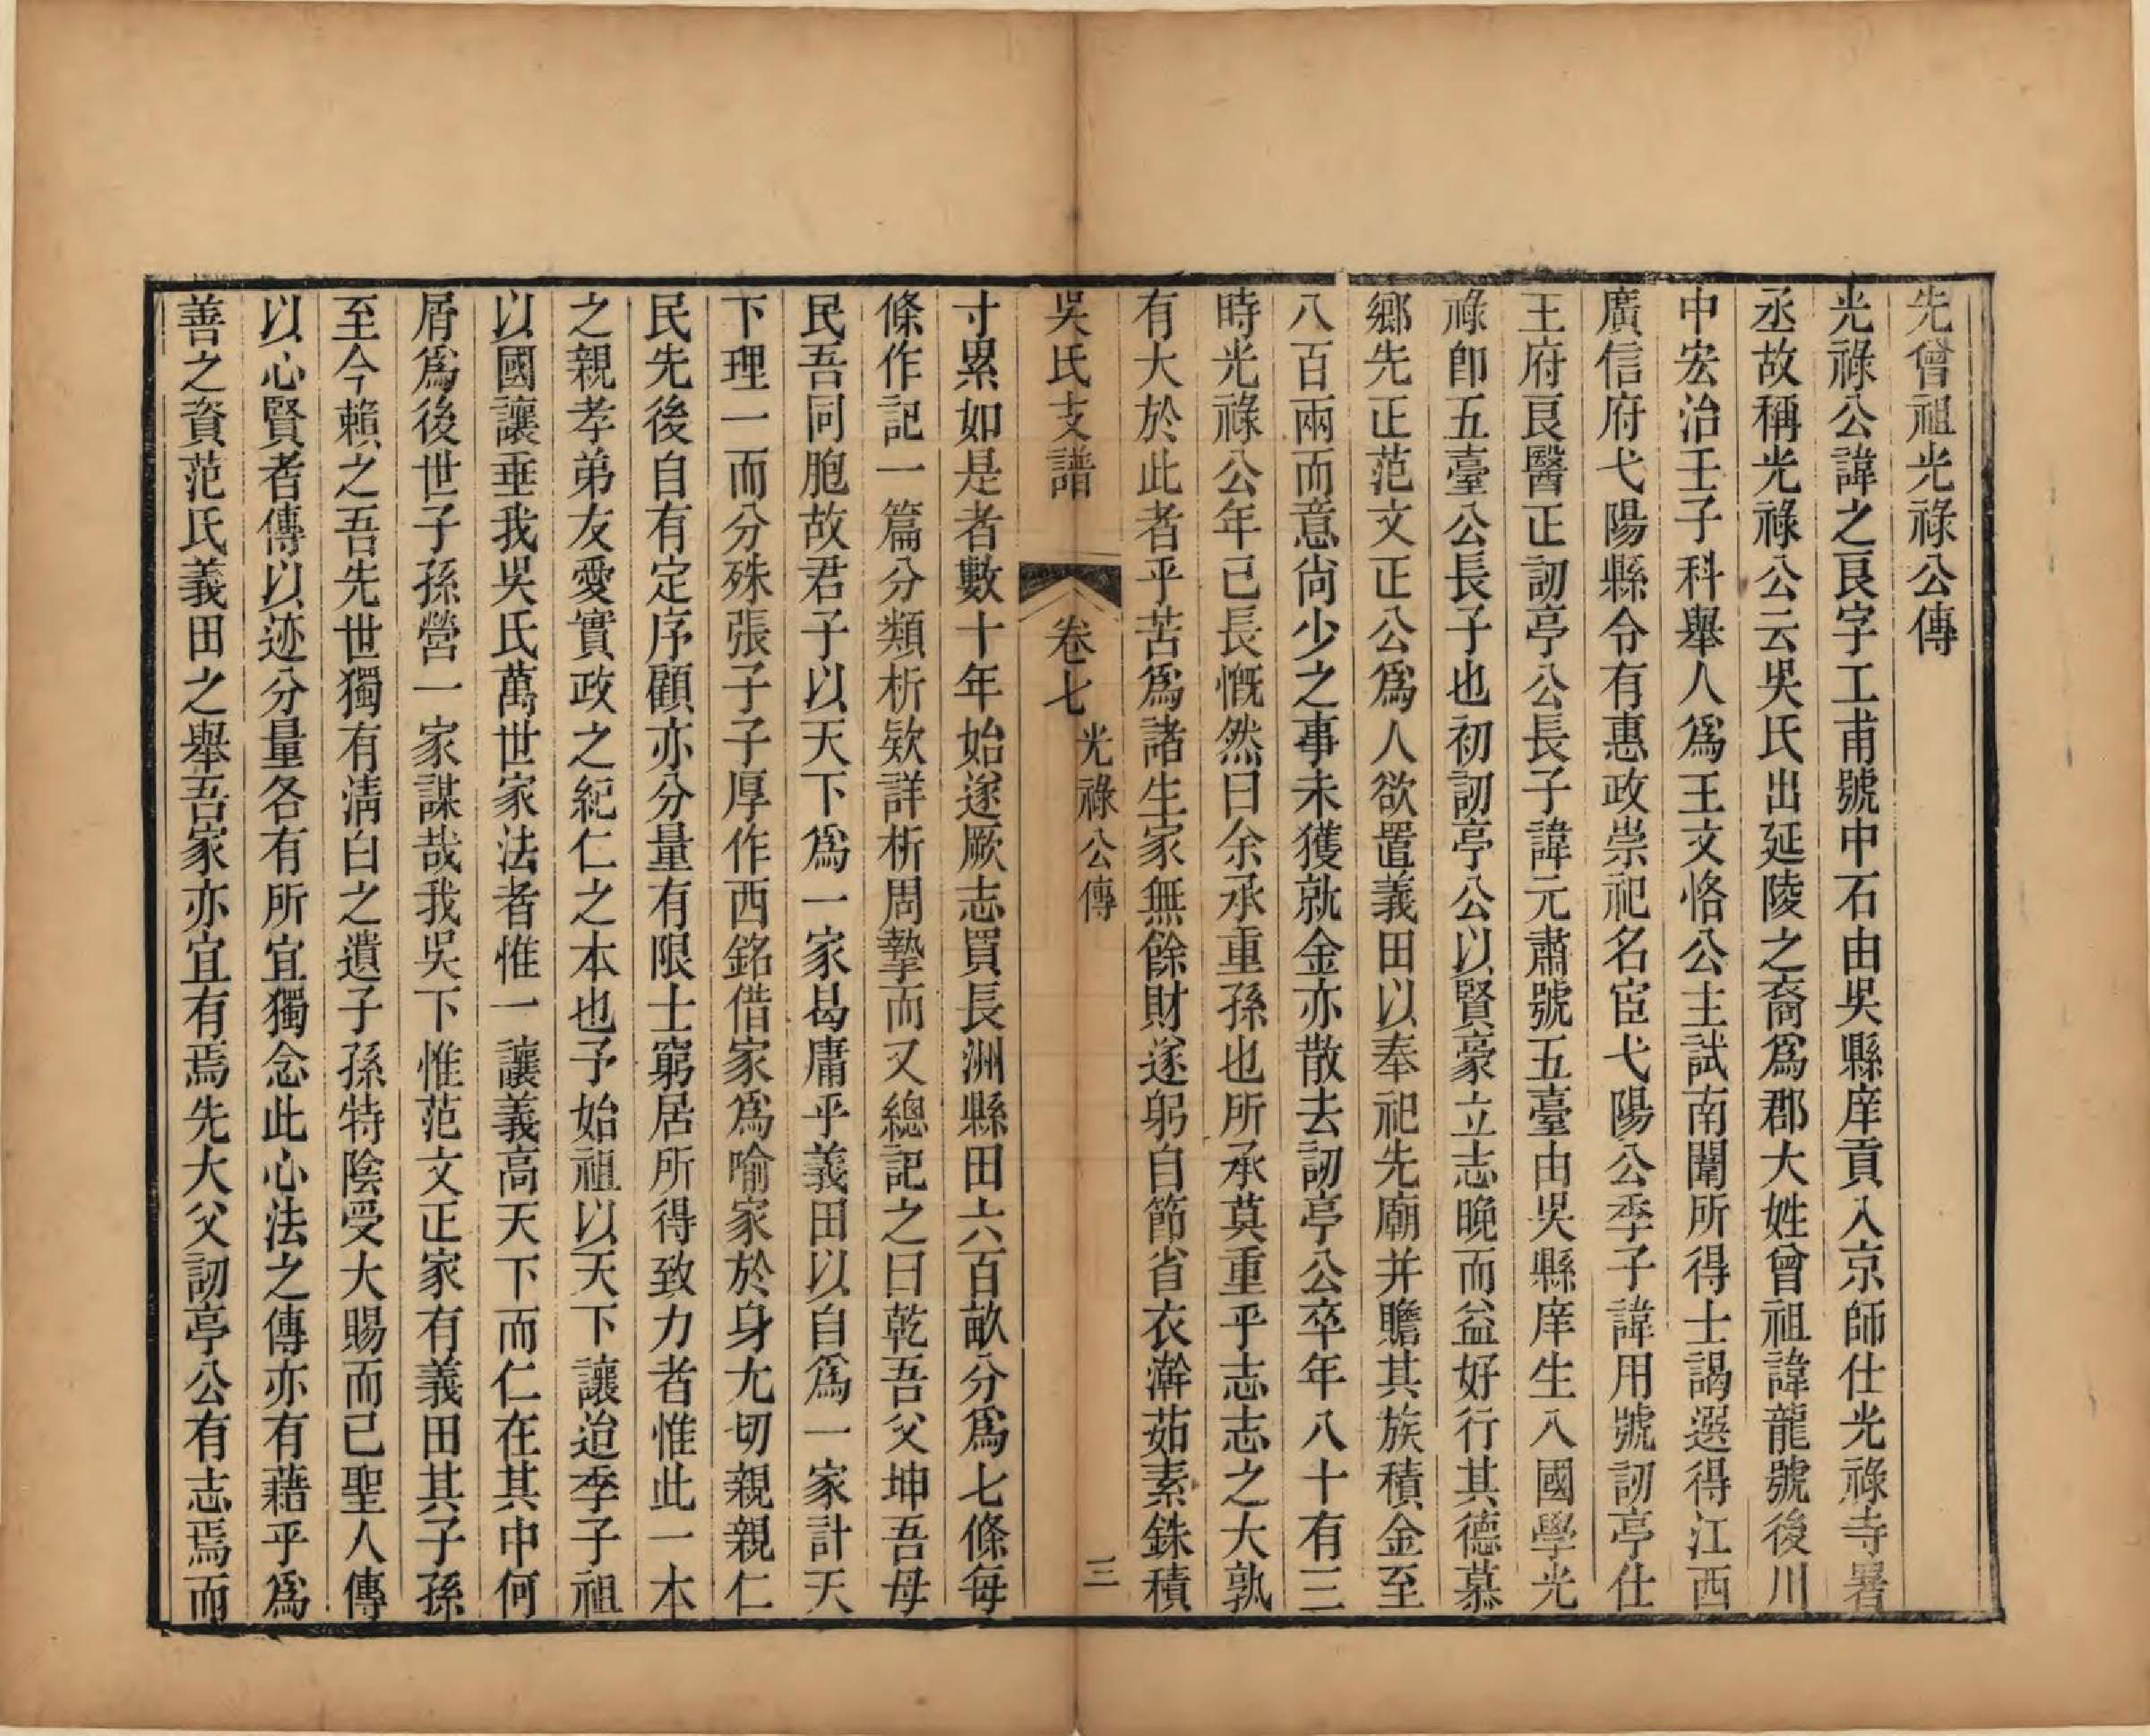 先曾祖光祿公傳
光祿公諱之良字工甫號中石由吳縣庠貢入京師仕光祿寺署
丞故稱光祿公云吳氏出延陵之裔爲郡大姓曾祖諱龍號後川
中宏治壬子科舉人爲王文恪公主試南闈所得士謁選得江西
廣信府弋陽縣令有惠政崇祀名宦弋陽公季子諱用號訒亭仕
王府良醫正訒亭公長子諱元肅號五臺由吳縣庠生入國學光
祿卽五臺公長子也初訒亭公以賢豪立志晚而益好行其德慕
鄉先正范文正公爲人欲置義田以奉祀先廟并贍其族積金至
八百兩而意尙少之事未獲就金亦散去訒亭公卒年八十有三
時光祿公年已長慨然曰余承重孫也所承莫重乎志志之大孰
有大於此者乎苦爲諸生家無餘財遂躬自節省衣澣茹素銖積
吳氏支譜 卷七 光祿公傳 三
寸累如是者數十年始遂厥志買長洲縣田六百畝分爲七條每
條作記一篇分類析欵詳析周摯而又總記之曰乾吾父坤吾母
民吾同胞故君子以天下爲一家曷庸乎義田以自爲一家計天
下理一而分殊張子子厚作西銘借家爲喻家於身尤切親親仁
民先後自有定序顧亦分量有限士窮居所得致力者惟此一本
之親孝弟友愛實政之紀仁之本也予始祖以天下讓迨季子祖
以國讓垂我吳氏萬世家法者惟一讓義高天下而仁在其中何
屑爲後世子孫營一家謀哉我吳下惟范文正家有義田其子孫
至今賴之吾先世獨有淸白之遺子孫特陰受大賜而已聖人傳
以心賢者傳以迹分量各有所宜獨念此心法之傳亦有藉乎爲
善之資范氏義田之舉吾家亦宜有焉先大父訒亭公有志焉而